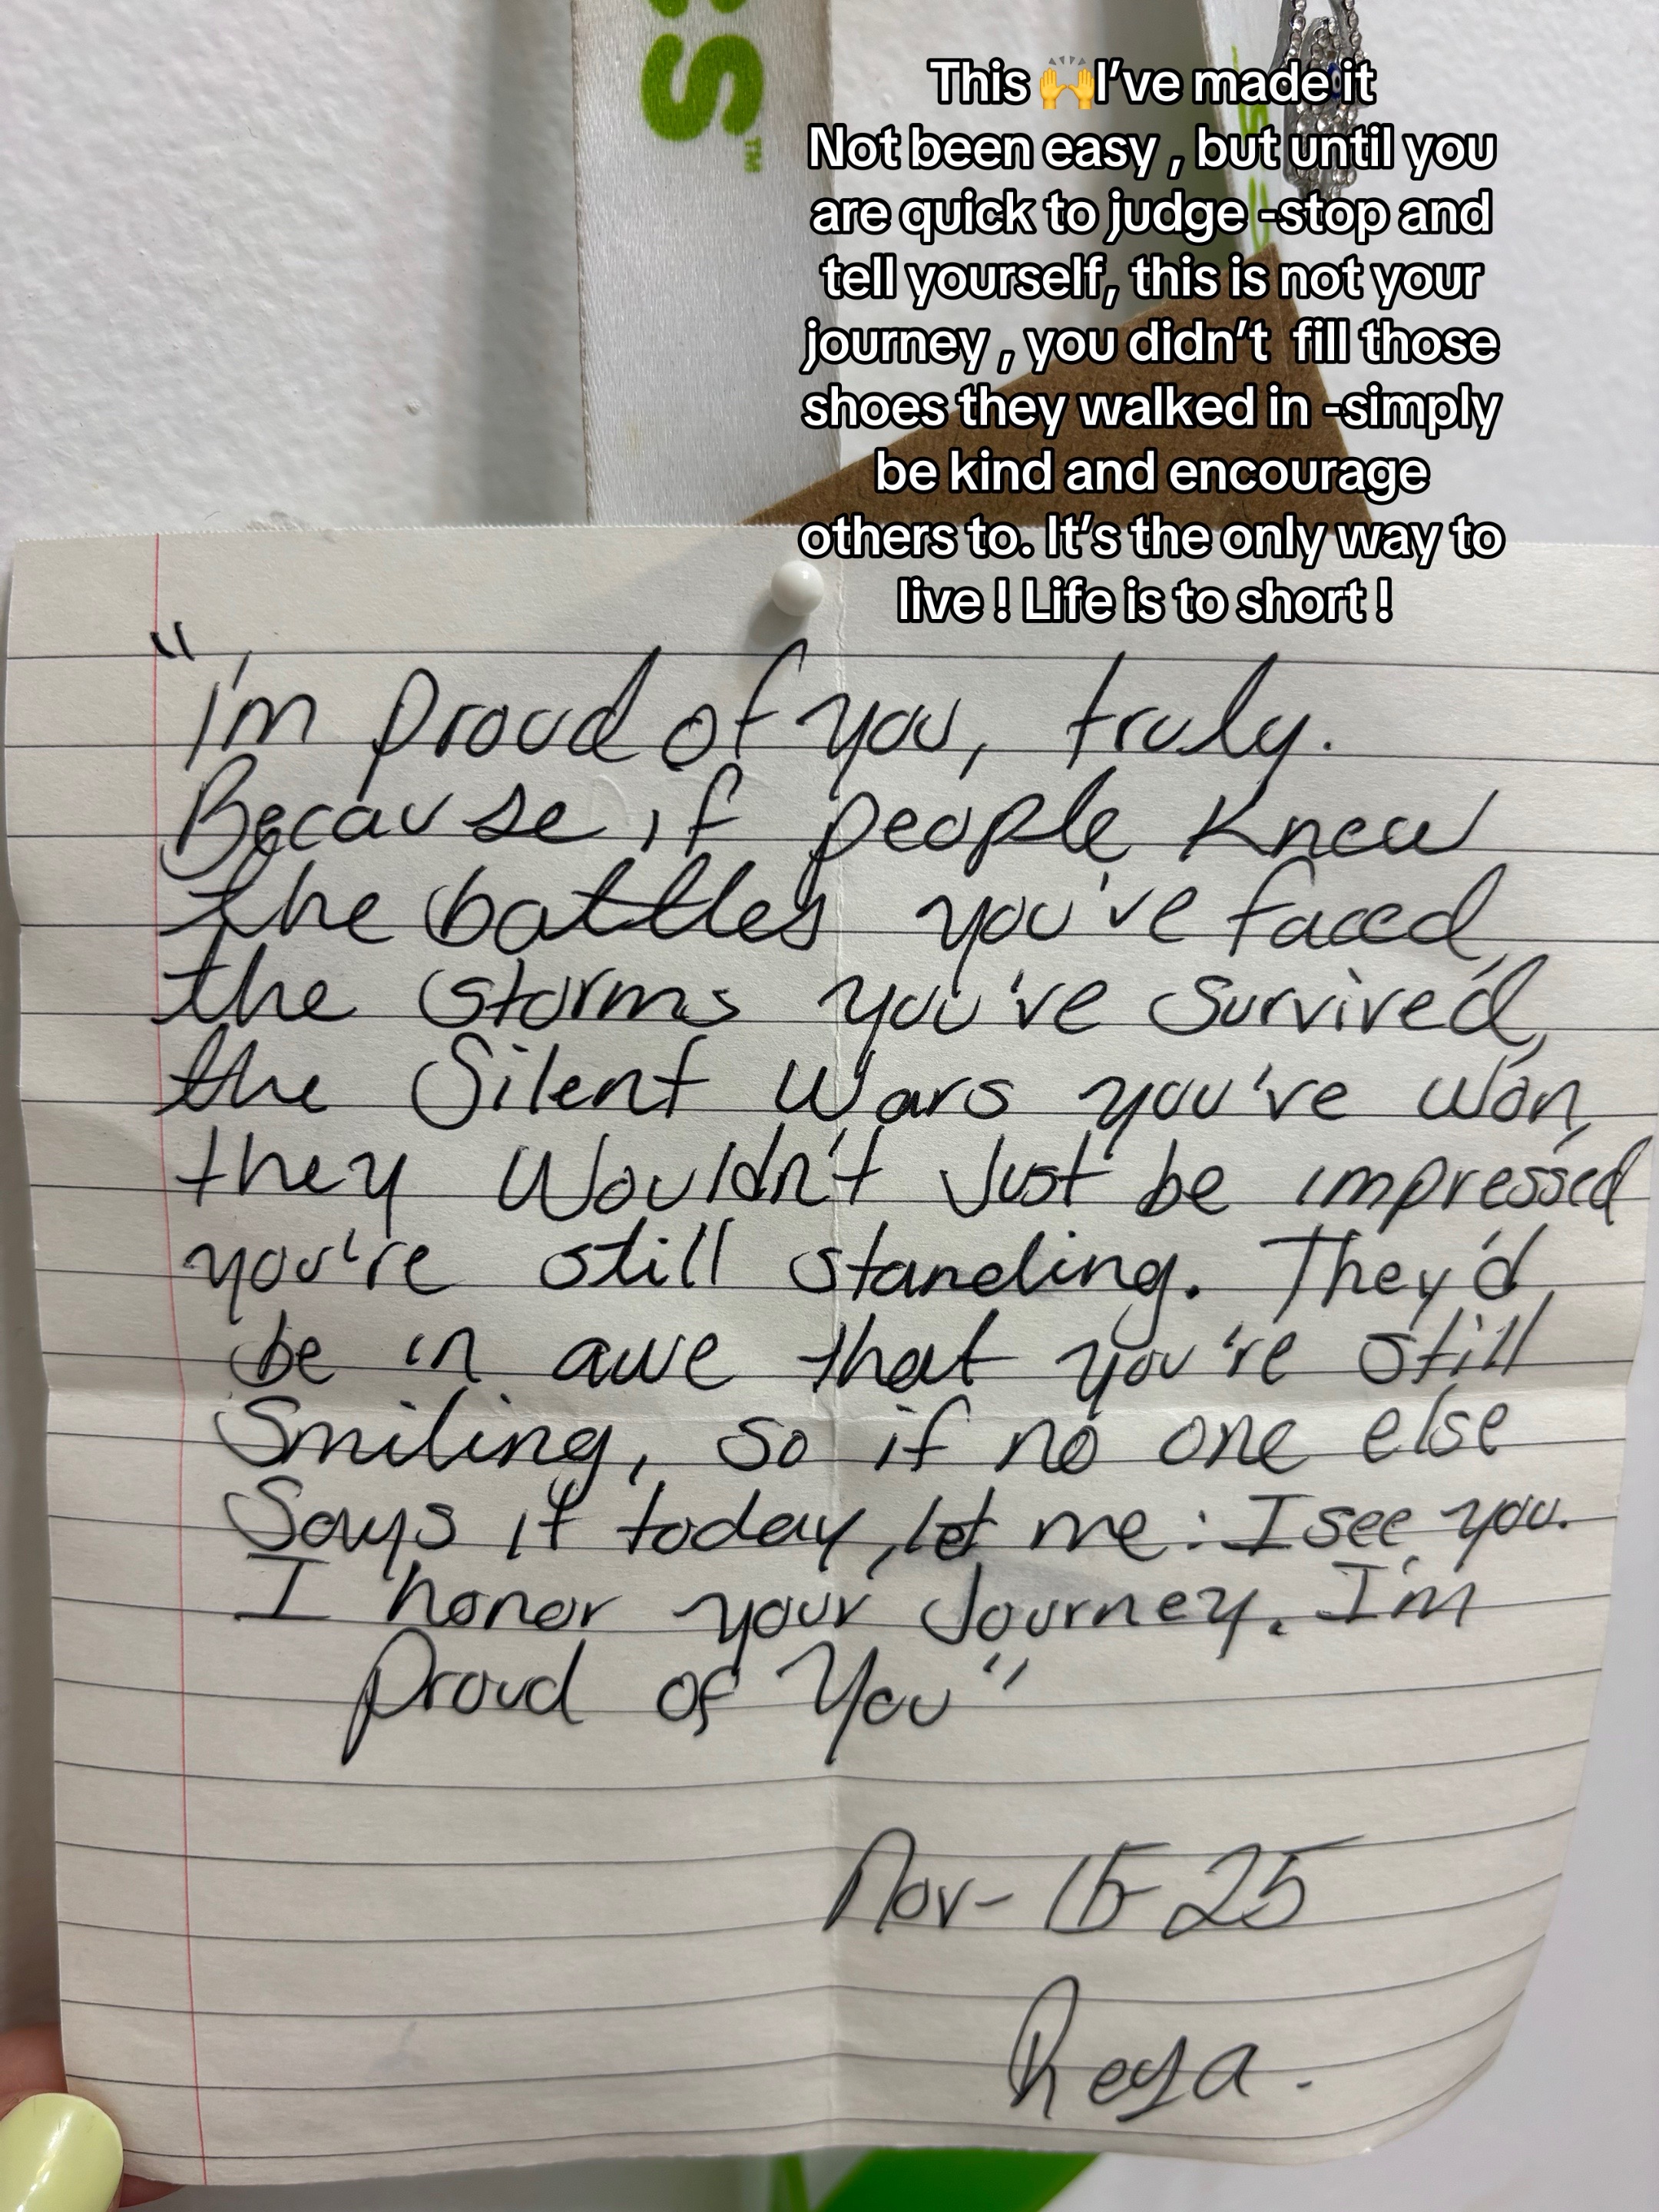 SS™
This 🙌I've made it
Not been easy , but until you
are quick to judge -stop and
tell yourself, this is not your
journey , you didn't  fill those
shoes they walked in -simply
be kind and encourage
others to. It's the only way to
live ! Life is to short !
"I'm proud of you, truly.
Because if people knew
the battles you've faced,
the storms you've survived,
the Silent Wars you've won,
they wouldn't Just be impressed
you're still standing. They'd
be in awe that you're still
Smiling, so if no one else
Says it today, let me: I see you.
I honor your Journey. I'm
Proud of You"
Nov- 15-25
Reya.